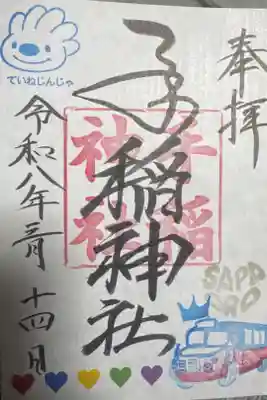 奉拝
手稲神社
手稲
神社
令和八年三月十四日
ていねじんじゃ
SAPP
ORO